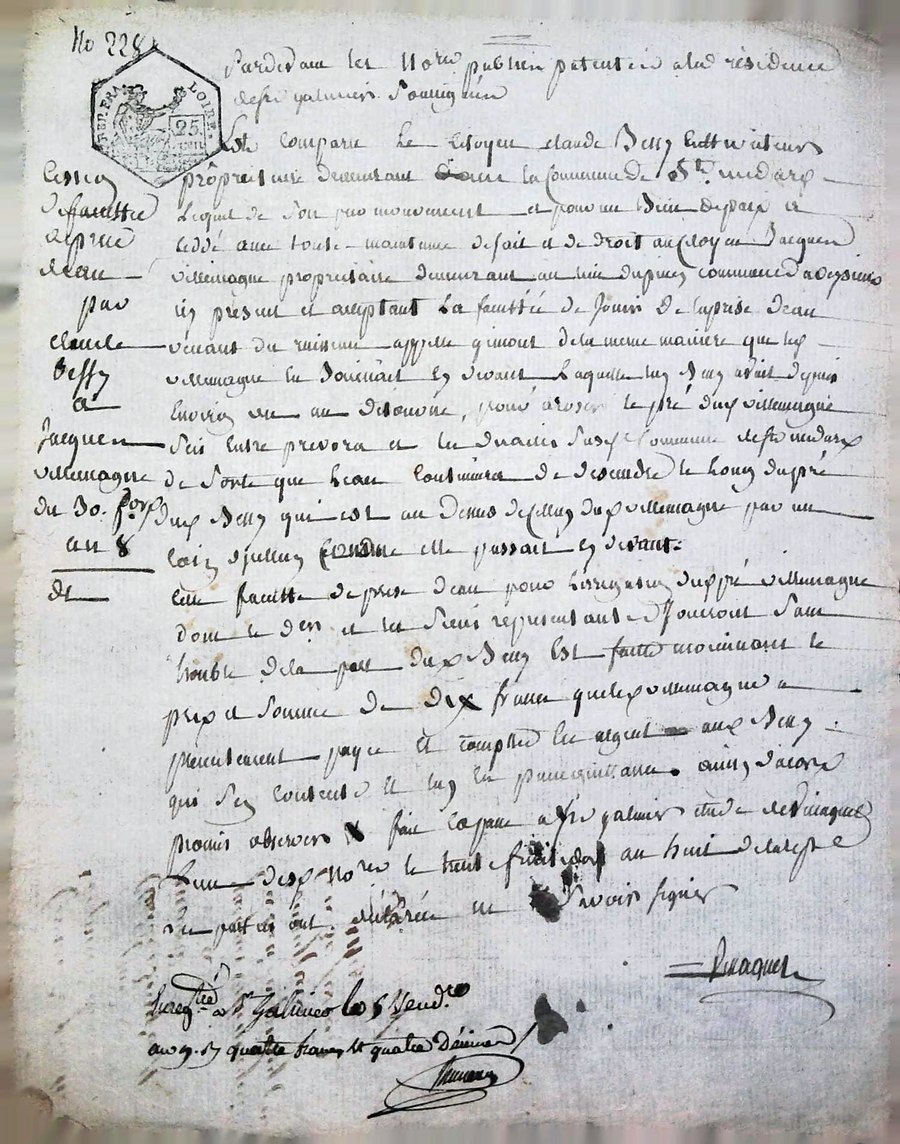 No 228
REP. FRA LOIRE
25
Pardevant les Nores publics patentés a la résidence
de st galmier soussignés
Est comparu le Citoyen claude Bessy cultivateur
propriétaire demeurant la Commune de St. medard
Lequel de son pro mouvement et pour un Bien de paix a
cédé avec toute maintenue de fait et de droit au Citoyen Jacques
villemagne propriétaire demeurant au lieu du pinay commune
icy présent et acceptant La faculté de Jouir de la prise d'eau
venant du ruisseau appellé gimont de la même manière que led
villemagne en Jouissait cy devant Laquelle led Bessy avait depuis
environ un an détourné, pour aroser le pré dud villemagne
sis entre prevora et les susd Commune de st medard
de sorte que l'eau continuera de descendre le long du pré
dud Bessy qui est au dessus de celuy dud villemagne par un
comme elle passait cy devant.
cette faculté de prise d'eau pour l'irrigation dud pré villemagne
dont le der et les siens représentants Jouiront sans
trouble de la part dud Bessy est faitte moiennant le
prix et somme de dix francs que led villemagne a
présentement payée et comptée en argent aud Bessy
qui s'en contente et luy en passe quittance. ainsy d'acord
promis observer fait et passé a st galmier étude de
l'un desd Nores le trente fructidor an huit de la rep
les parties ont déclarées ne savoir signer
cession
de faculté
de prise
d'eau
par
claude
bessy
a
Jacques
villemagne
du 30. for
an 8
Enregtré a St Galmier le 5 Vendre
an 9. quatre francs et quatre Décimes